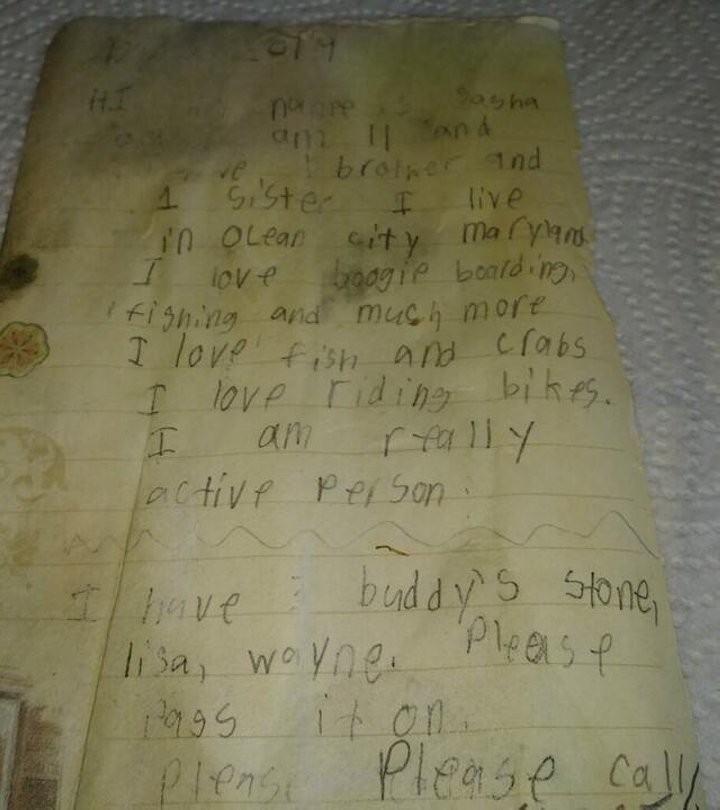 HI name is Sasha
am 11 and
1 brother and
1 Sister I live
in Ocean city maryland
I love boogie boarding,
fishing and much more
I love fish and crabs
I love riding bikes.
I am really
active person.
I have buddy's stone,
lisa, wayne. Please
Pass it on.
Please call